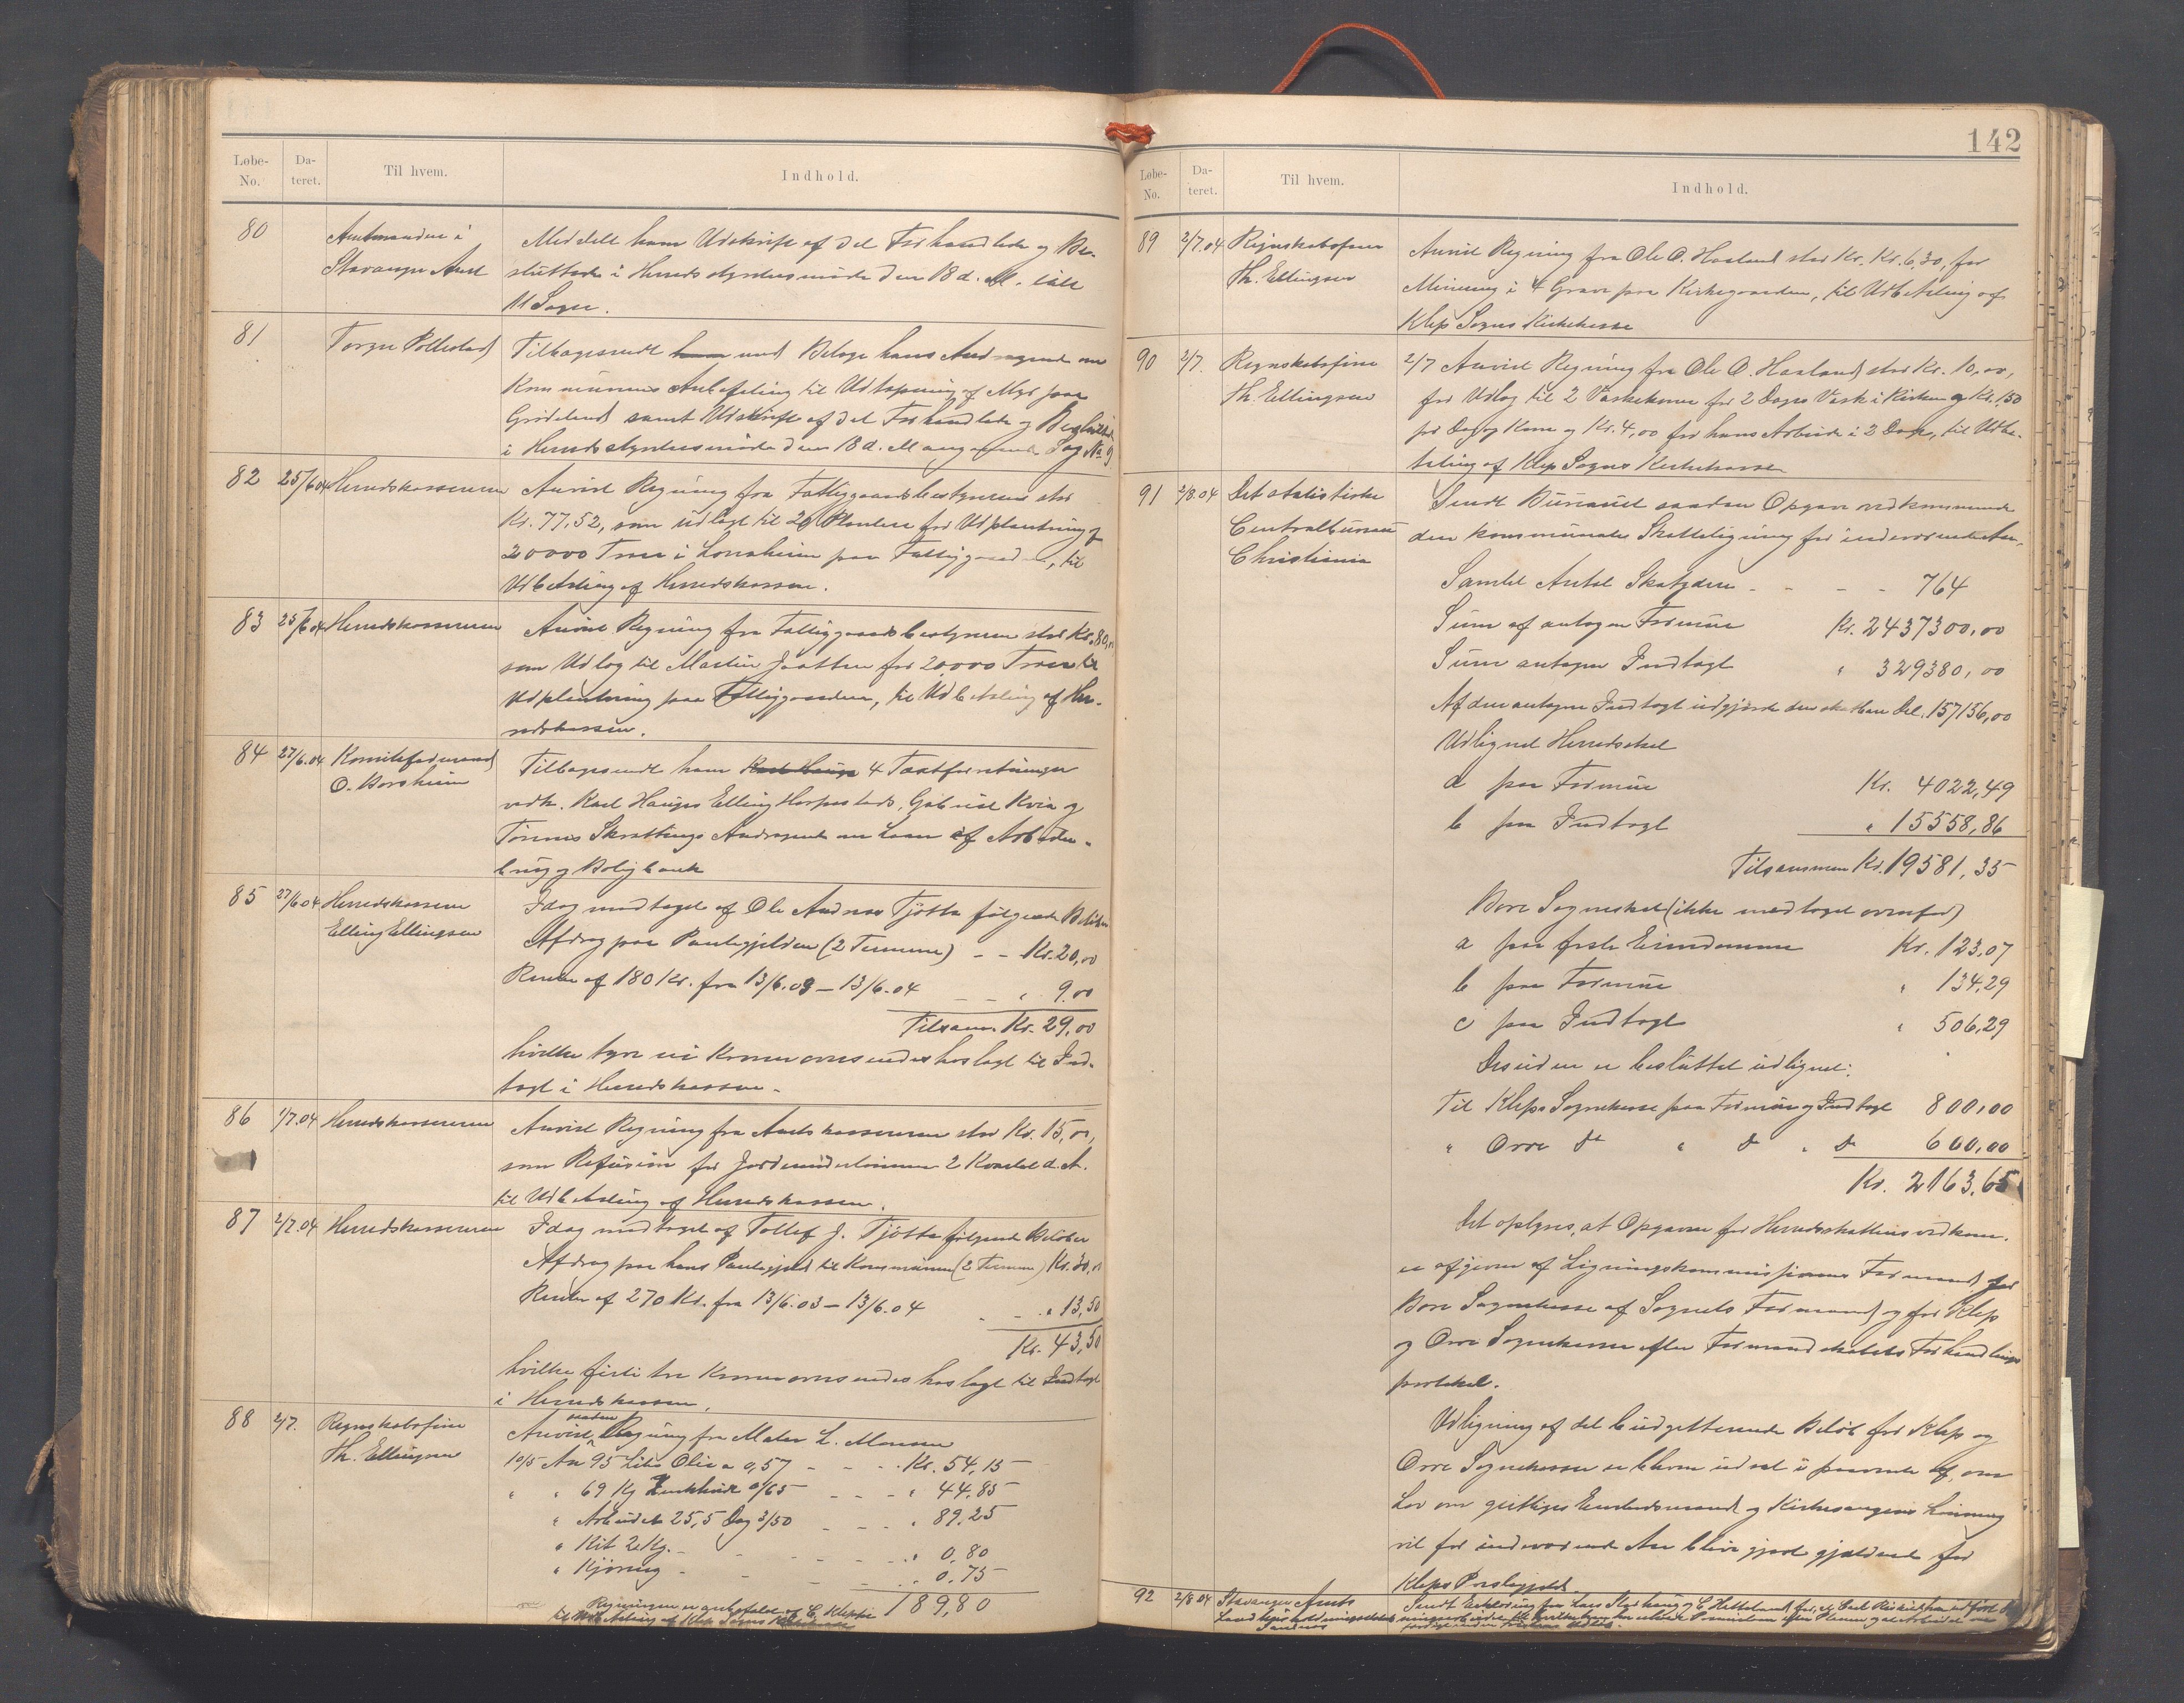 Løbe-No. Da-teret. Til hvem. Indhold.
80 Amtmanden i Stavanger Amt
Meddelt ham Udskrift af det Forhandlede og Be-
sluttede i Herredsstyrelsesmøde den 18 d. M. ialt
11 Sager.
81 Torger Pollestad
Tilbagesendt ham med Bilage hans Andragende om
Kommunens Anbefaling til Udtapning af Myr paa
Grødeland samt Udskrift af det Forhandlede og Besluttede
i Herredsstyrelsesmøde den 18 d. M angaaende Sag No 9
82 25/6 04 Herredskassereren
Anvist Regning fra Fattiggaardsbestyreren stor
Kr. 77,52, som udlagt til 20 Plantere for Udplantning af
20000 Træer i Lonaheim paa Fattiggaarden, til
Udbetaling af Herredskassen.
83 25/6 04 Herredskassereren
Anvist Regning fra Fattiggaardsbestyreren stor Kr. 80,00
som Udlog til Martin Jaatten for 20,000 Træer til
Udplantning paa Fattiggaarden, til Udbetaling af Her-
redskassen.
84 27/6.04 Komiteformand O. Borsheim
Tilbagesendt ham Karl Hauge 4 Taxtforretninger
vedk. Karl Hauges Elling Horpestads, Gabriel Kvia og
Tønnes Skrettings Andragende om Laan af Arbeider-
brug og Boligbank
85 27/6 04 Herredskasserer Elling Ellingsen
Idag modtaget af Ole Andreas Tjøtta følgende Beløber
Afdrag paa Pantegjelden (2 Terminer) - - Kr. 20,00
Renter af 180 Kr. fra 13/6.03 - 13/6.04 - - " 9.00
Tilsam. Kr. 29,00
hvilke tyve ni Kroner oversendes hoslagt til Ind-
tægt i Herredskassen.
86 1/7.04 Herredskassereren
Anvist Regning fra Amtskassereren stor Kr. 15,00,
som Refusion for Jordemoderlønnen 2 Kvartal d. A.
til Udbetaling af Herredskassen.
87 2/7.04 Herredskassereren
Idag modtaget af Tollef J. Tjøtta følgende Beløber
Afdrag paa hans Pantegjeld til Kommunen (2 Terminer) Kr. 30,00
Renter af 270 Kr. fra 13/6.03 - 13/6.04 - - " 13,50
Kr. 43,50
hvilke firti tre Kroner oversendes hoslagt til Indtægt
i Herredskassen.
88 2/7. Regnskabsfører Th. Ellingsen
Anvist saadan Regning fra Maler L. Monsen
10/5 An 95 Liter Olie a 0,57 - - - Kr. 54,15
" " 69 Kg Zinkhvidt 0/65 - - - " 44,85
" Arbeidet 25,5 Dag 3/50 - - - " 89,25
" Kit 2 Kg. - - - - " 0,80
" Kjøring - - - - " 0,75
189,80
Regningen er anbefalet af C. Kleppe
til Udbetaling af Klep Sogns Kirkekasse
142
Løbe-No. Da-teret. Til hvem. Indhold.
89 2/7.04 Regnskabsfører Th. Ellingsen
Anvist Regning fra Ole O. Haaland stor Kr. Kr. 6,30, for
Minering i 4 Grave paa Kirkegaarden, til Udbetaling af
Klep Sogns Kirkekasse
90 2/7 Regnskabsfører Th. Ellingsen
2/7 Anvist Regning fra Ole O. Haaland stor Kr. 10,00,
for Udlog til 2 Vaskekoner for 2 Dages Vask i Kirken a Kr. 1,50
pr Dag og Kone og Kr. 4,00 for hans Arbeide i 2 Dage, til Udbe-
taling af Klep Sogns Kirkekasse
91 2/8.04 Det statistiske Centralbureau Christiania
Sendt Bureauet saadan Opgave vedkommende
den kommunale Skatteligning for indeværende Aar.
Samlet Antal Skatydere - - - - 764
Sum af antagen Formue Kr. 2437300,00
Sum antagen Indtægt " 329380,00
Af den antagne Indtægt udgjorde den skatbare Del. 157156,00
Udlignet Herredsskat
a paa Formue Kr. 4022,49
b paa Indtægt " 15558,86
Tilsammen Kr. 19581,35
Bore Sogneskat (ikke medtaget ovenfor)
a paa faste Eiendomme Kr. 123,07
b paa Formue " 134,29
c paa Indtægt " 506,29
Desuden er besluttet udlignet:
Til Kleps Sognekasse paa Formue og Indtægt 800,00
" Orre do " do " do 600,00
Kr. 2163,65
Det oplyses, at Opgaven for Herredsskattens vedkom.
er afgiven af Ligningskommissionens Formand, for
Bore Sognekasse af Sognets Formand og for Klep
og Orre Sognekasse efter Formandskabets Forhandlings
protokol.
Udligning af det budgetterende Beløb for Klep og
Orre Sognekasser er bleven udsat i paavente af, om
Lov om geistliges Enkedsmand og Kirkesangeres Lønning
vil for indeværende Aar blive gjort gjældende for
Kleps Prestegjeld.
92 2/8 04 Stavanger Amts Landhusholdningsselskab Sandnes
Sendt Erklæring fra Lars Skjæthaug og C. Hetteland for, at Carl